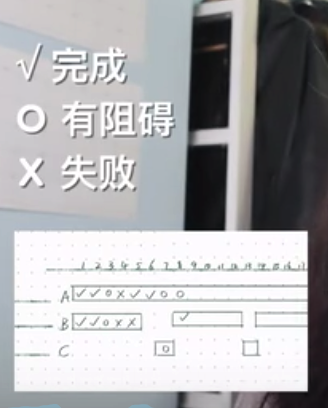 √ 完成
O 有阻碍
X 失败
1 2 3 4 5 6 7 8 9 10 11 12 13 14 15 16 17
A ✓ ✓ O X ✓ ✓ O O
B ✓ ✓ O X X ✓
C O